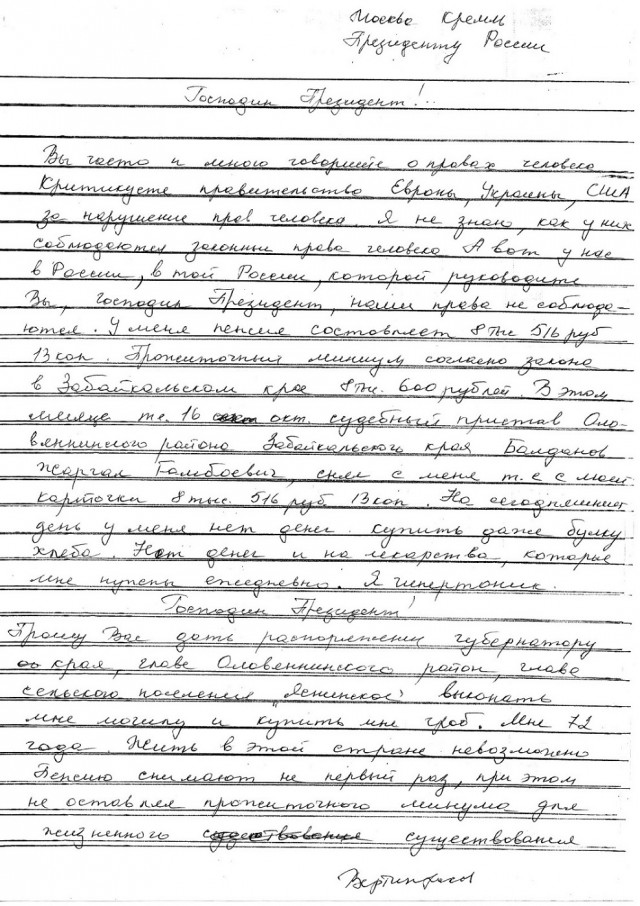 Москва Кремль
Президенту России
Господин Президент!..
Вы часто и много говорите о правах человека
Критикуете правительство Европы, Украины, США
за нарушение прав человека. Я не знаю, как у них
соблюдаются законные права человека А вот у нас
в России, в той России, которой руководите
Вы, господин Президент, наши права не соблюда-
ются. У меня пенсия составляет 8 тыс 516 руб
13 коп. Прожиточный минимум согласно закона
в Забайкальском крае 8 ты. 600 рублей. В этом
месяце т.е. 16 окт. судебный пристав Оло-
вяннинского района Забайкальского края Балданов
Жаргал Гамбоевич, снял с меня т.е с моей
карточки 8 тыс. 516 руб 13 коп. На сегодняшний
день у меня нет денег купить даже булку
хлеба. Нет денег и на лекарства, которые
мне нужны ежедневно. Я гипертоник.
Господин Президент!
Прошу Вас дать распоряжении губернатору
края, главе Оловеннинского район, глава
сельского поселения „Ясненское" выкопать
мне могилу и купить мне гроб. Мне 72
года. Жить в этой стране невозможно
Пенсию снимают не первый раз, при этом
не оставляя прожиточного минума для
жизненного существования